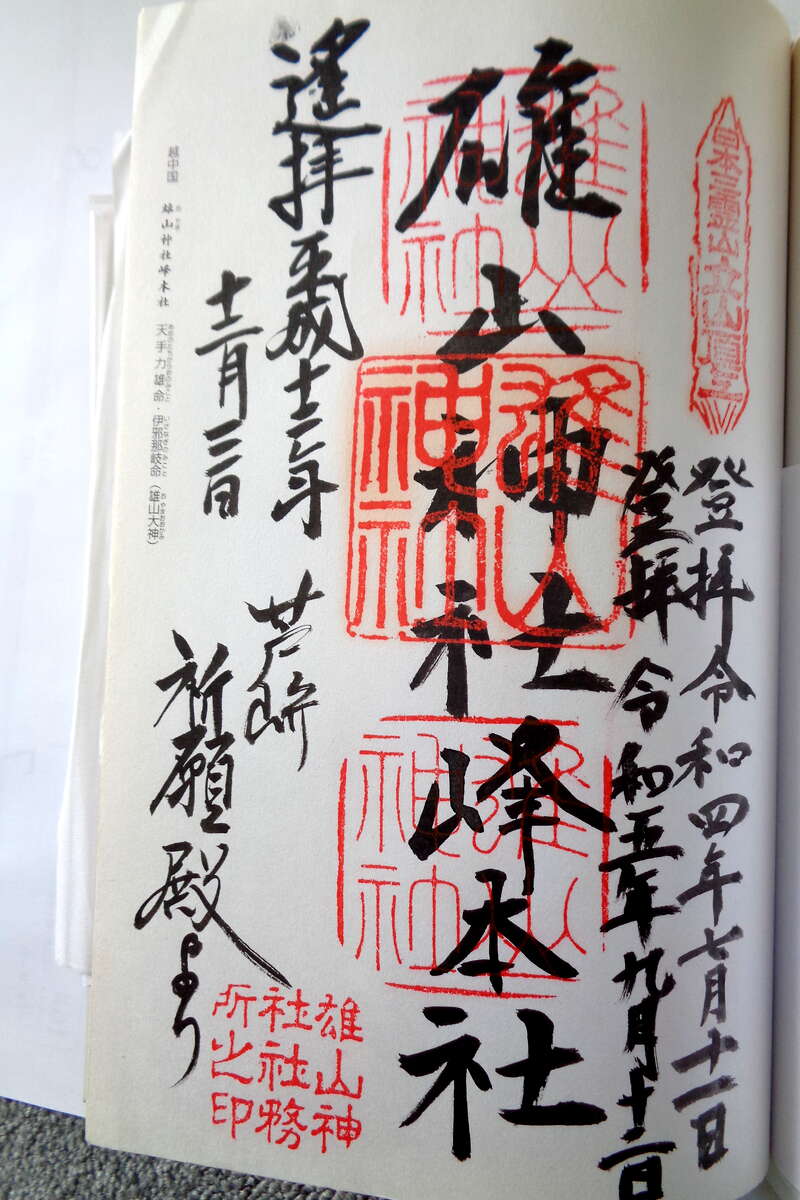 日本三霊山立山頂上
登拝令和四年七月十一日
登拝令和五年九月十二日
雄山神社峰本社
雄山神社
雄山神社
雄山神社
遙拝平成十二年
十二月三日
芦峅
祈願殿より
雄山神
社社務
所之印
越中国 雄山神社峰本社 天手力雄命・伊邪那岐命（雄山大神）